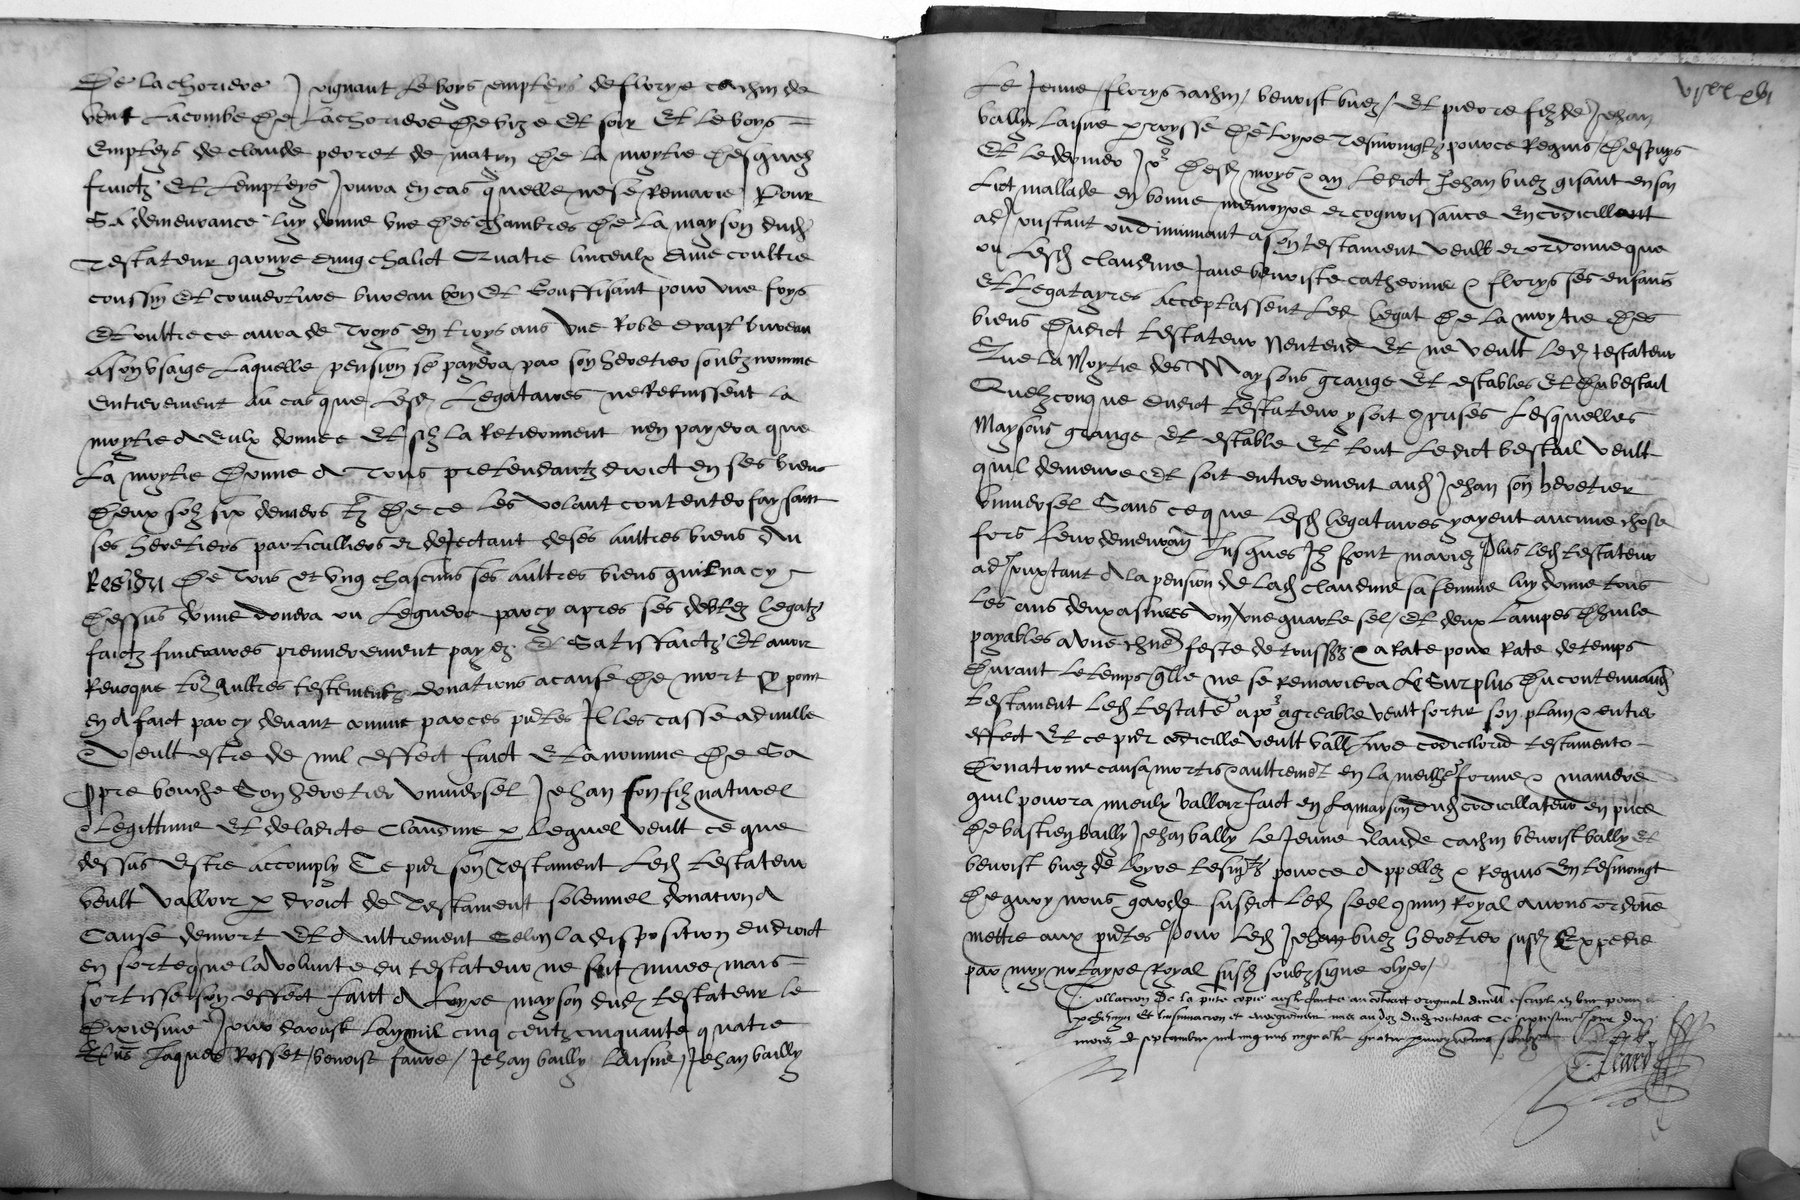 De Lachoriere Joignant Le boys empteys de florys cachin de
vent Lacombe De Lachoriere De bize Et soir Et Le boys
Empteys de claude peoret de matyn De La moytie Desquelz
fruictz Et Lempteys Jouira en cas quelle ne se Remarie Pour
Sa demeurance luy donne une Des chambres De La mayson dud
Testateur garnye dung chalict Quatre linceulx Une coultre
coussin Et couverture bureau bon Et Souffisant pour une foys
Et oultre ce aura de Troys en troys ans Une Robe drapt bureau
A son usaige Laquelle pension se payera par son heretier soubznomme
Entierement Au cas que Lesd Legataires ne Retinssent La
moytie A Eulx donnee Et silz La Retiennent nen payera que
La moytie Donne A Tous pretendantz droict en ses biens
Deux solz six deniers tz De ce Les volant contenter faysant
ses heretiers particulliers et dejectant de ses Aultres biens Au
Residu De Tous et ung chascuns ses aultres biens quil Na cy
Dessus donne donera ou Leguera par cy apres ses debtez legatz
faictz funeraires premierement payez Et Satisfaictz Et avoir
Revoque tos Aultres testementz donations a cause De mort Sy point
en A faict par cy devant comme par ces pntes Il les casse adnulle
& Veult estre de nul effect faict Et a nomme De Sa
ppre bouche Son heretier Universel Jehan son filz naturel
& Legittime Et de ladicte Claudine p Lequel Veult ce que
dessus Estre accomply Ce pnt son Testament Led testateur
veult Valloir p droict de Testament solennel donation A
Cause de mort Et Aultrement Selon la disposition du droict
en sorte que la volunte du testateur ne soit muee mais
sortisse son effect faict A Loyre mayson dud Testateur le
Dixiesme Jour daoust Lan mil cinq centz cinquante quatre
Pns Jaques Rosset / benoist faure / Jehan bailly Laisne / Jehan bailly
Le Jeune / florys cachin / benoist buez / Et pierre filz de Jehan
bally Laisne paroysse De Loyre Tesmoingtz pource Requis / Despuys
Et Le dernier Jor Desd moys & an Ledict Jehan buez gisant en son
Lict mallade en bonne memoyre et cognoissance En codicillant
adJoustant ou diminuant a son testament veult et ordonne que
ou Lesd claudine Jane benoiste catherine & florys ses enfans
Et Legatayres Acceptassent Led Legat De La moytie Des
biens Dudict testateur Nentend Et ne veult Led testateur
Que La Moytie des Maysons grange Et estables Et Du bestail
Quelzconque dudict testateur y soit cprises Lesquelles
Maysons grange Et estable Et tout Ledict bestail veult
quil demeure Et soit entierement aud Jehan son heretier
Universel Sans ce que Lesd legataires y ayent aucune chose
fors Leur demeuran Jusques Ilz seront mariez Plus Led testateur
adJouxtant A la pension de Lad Claudine sa femme luy donne tous
Les ans deux asnees vin une quarte sel / Et deux Lampes Dhuile
payables a Une chne feste de toussz & a Rate pour Rate de temps
Durant Le temps qlle ne se Remariera Le Surplus Du contenu aud
testament Led testater apor agreable veult sortir son plain & entier
effect Et ce pnt codicille veult vall Jure codicilorū testamento
Donatione causa mortis & aultremet en la meillre forme & maniere
quil pourra mieulx valloir faict en La mayson dud codicillateur en pnce
De bastien bailly Jehan bally Le Jeune claude cachin benoist bally Et
benoist buez de Loyre tesmgtz pource Appellez & Requis En tesmoingt
De quoy nous garde susdict Led seel cmun Royal avons ordōne
mettre aux pntes Pour Led Jehan buez heretier susd Expedie
par moy notayre Royal susd soubzsigne
Collacion De la pnte copie a este faicte au cōtract original